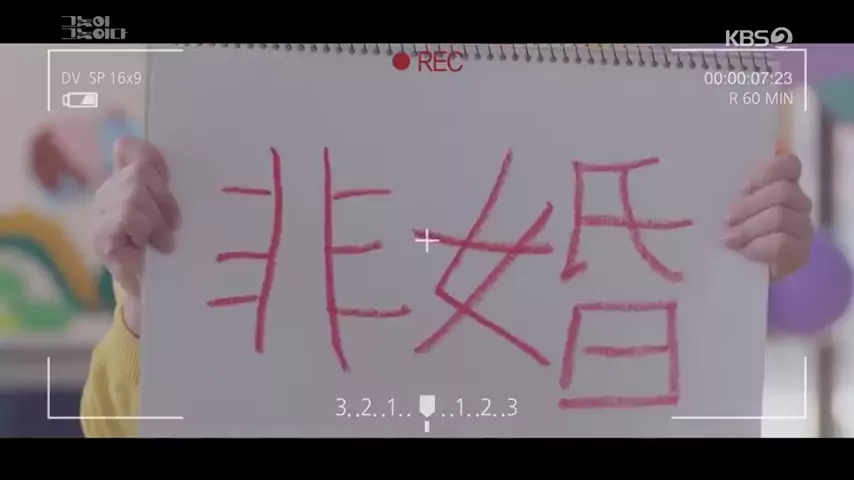 그놈이
그놈이다
KBS2
REC
DV SP 16x9
00:00:07:23
R 60 MIN
非婚
3..2..1.. ..1..2..3